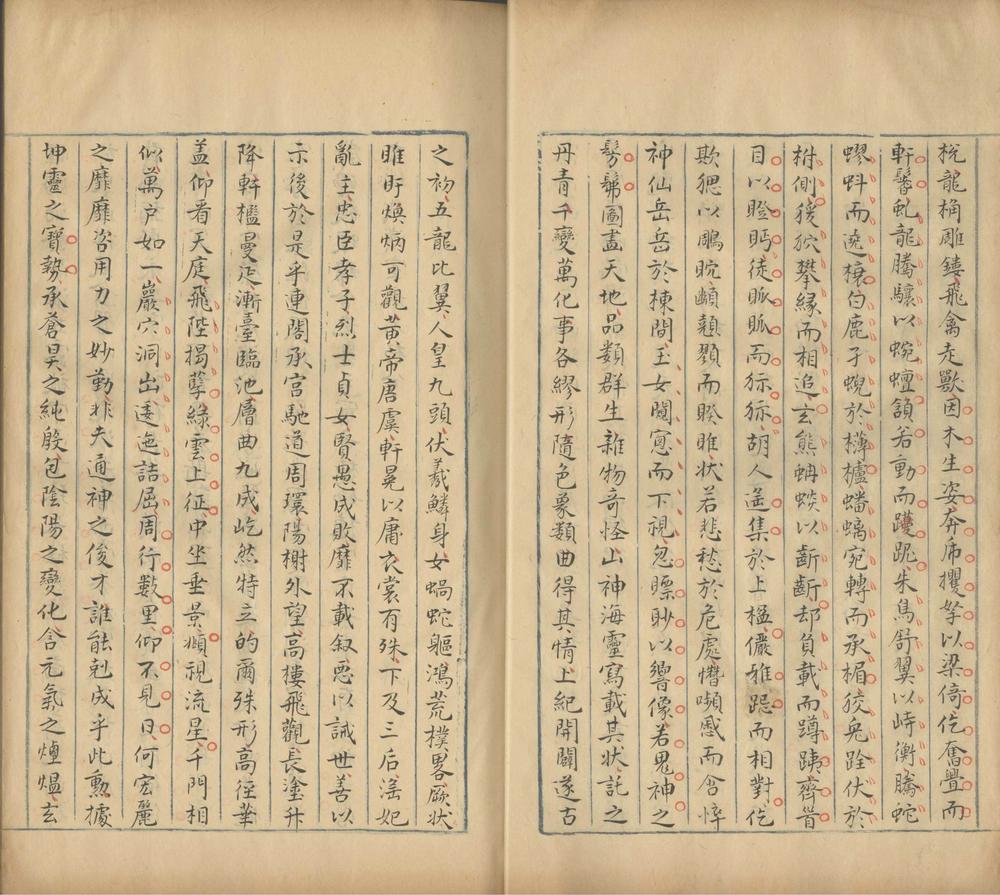 梲龍桷雕鏤飛禽走獸因木生姿奔虎攫挐以梁倚仡奮舋而
軒鬐虬龍騰驤以蜿蟺頷若動而躨跜朱鳥舒翼以峙衡騰蛇
蟉虯而遶榱白鹿子蜺於欂櫨蟠螭宛轉而承楣狡兎跧伏於
柎側猨狖攀緣而相追玄熊蚺蜦以齗齗却負載而蹲踑齊首
目以瞪眄徒眽眽而狋狋胡人遥集於上楹儼雅跽而相對仡
欺䫢以鵰䀏䫜顟顟而睽睢狀若悲愁於危處憯嚬蹙而含悴
神仙岳岳於棟間玉女闚窓而下視忽瞟眇以響像若鬼神之
髣髴圖畫天地品類群生雜物奇怪山神海靈寫載其狀託之
丹青千變萬化事各繆形隨色象類曲得其情上紀開闢遂古
之初五龍比翼人皇九頭伏羲鱗身女媧蛇軀鴻荒樸畧厥狀
睢盱煥炳可觀黄帝唐虞軒冕以庸衣裳有殊下及三后滛妃
亂主忠臣孝子烈士貞女賢愚成敗靡不載叙惡以誡世善以
示後於是乎連閣承宫馳道周環陽榭外望高樓飛觀長塗升
降軒檻曼延漸臺臨池層曲九成屹然特立的爾殊形高徑華
盖仰看天庭飛陛揭孽緣雲上征中坐垂景頫視流星千門相
似萬户如一巖穴洞出逶迤詰屈周行數里仰不見日何宏麗
之靡靡咨用力之妙勤非夫通神之俊才誰能剋成乎此勲據
坤靈之寶勢承蒼昊之純殷包陰陽之變化含元氣之煙煴玄